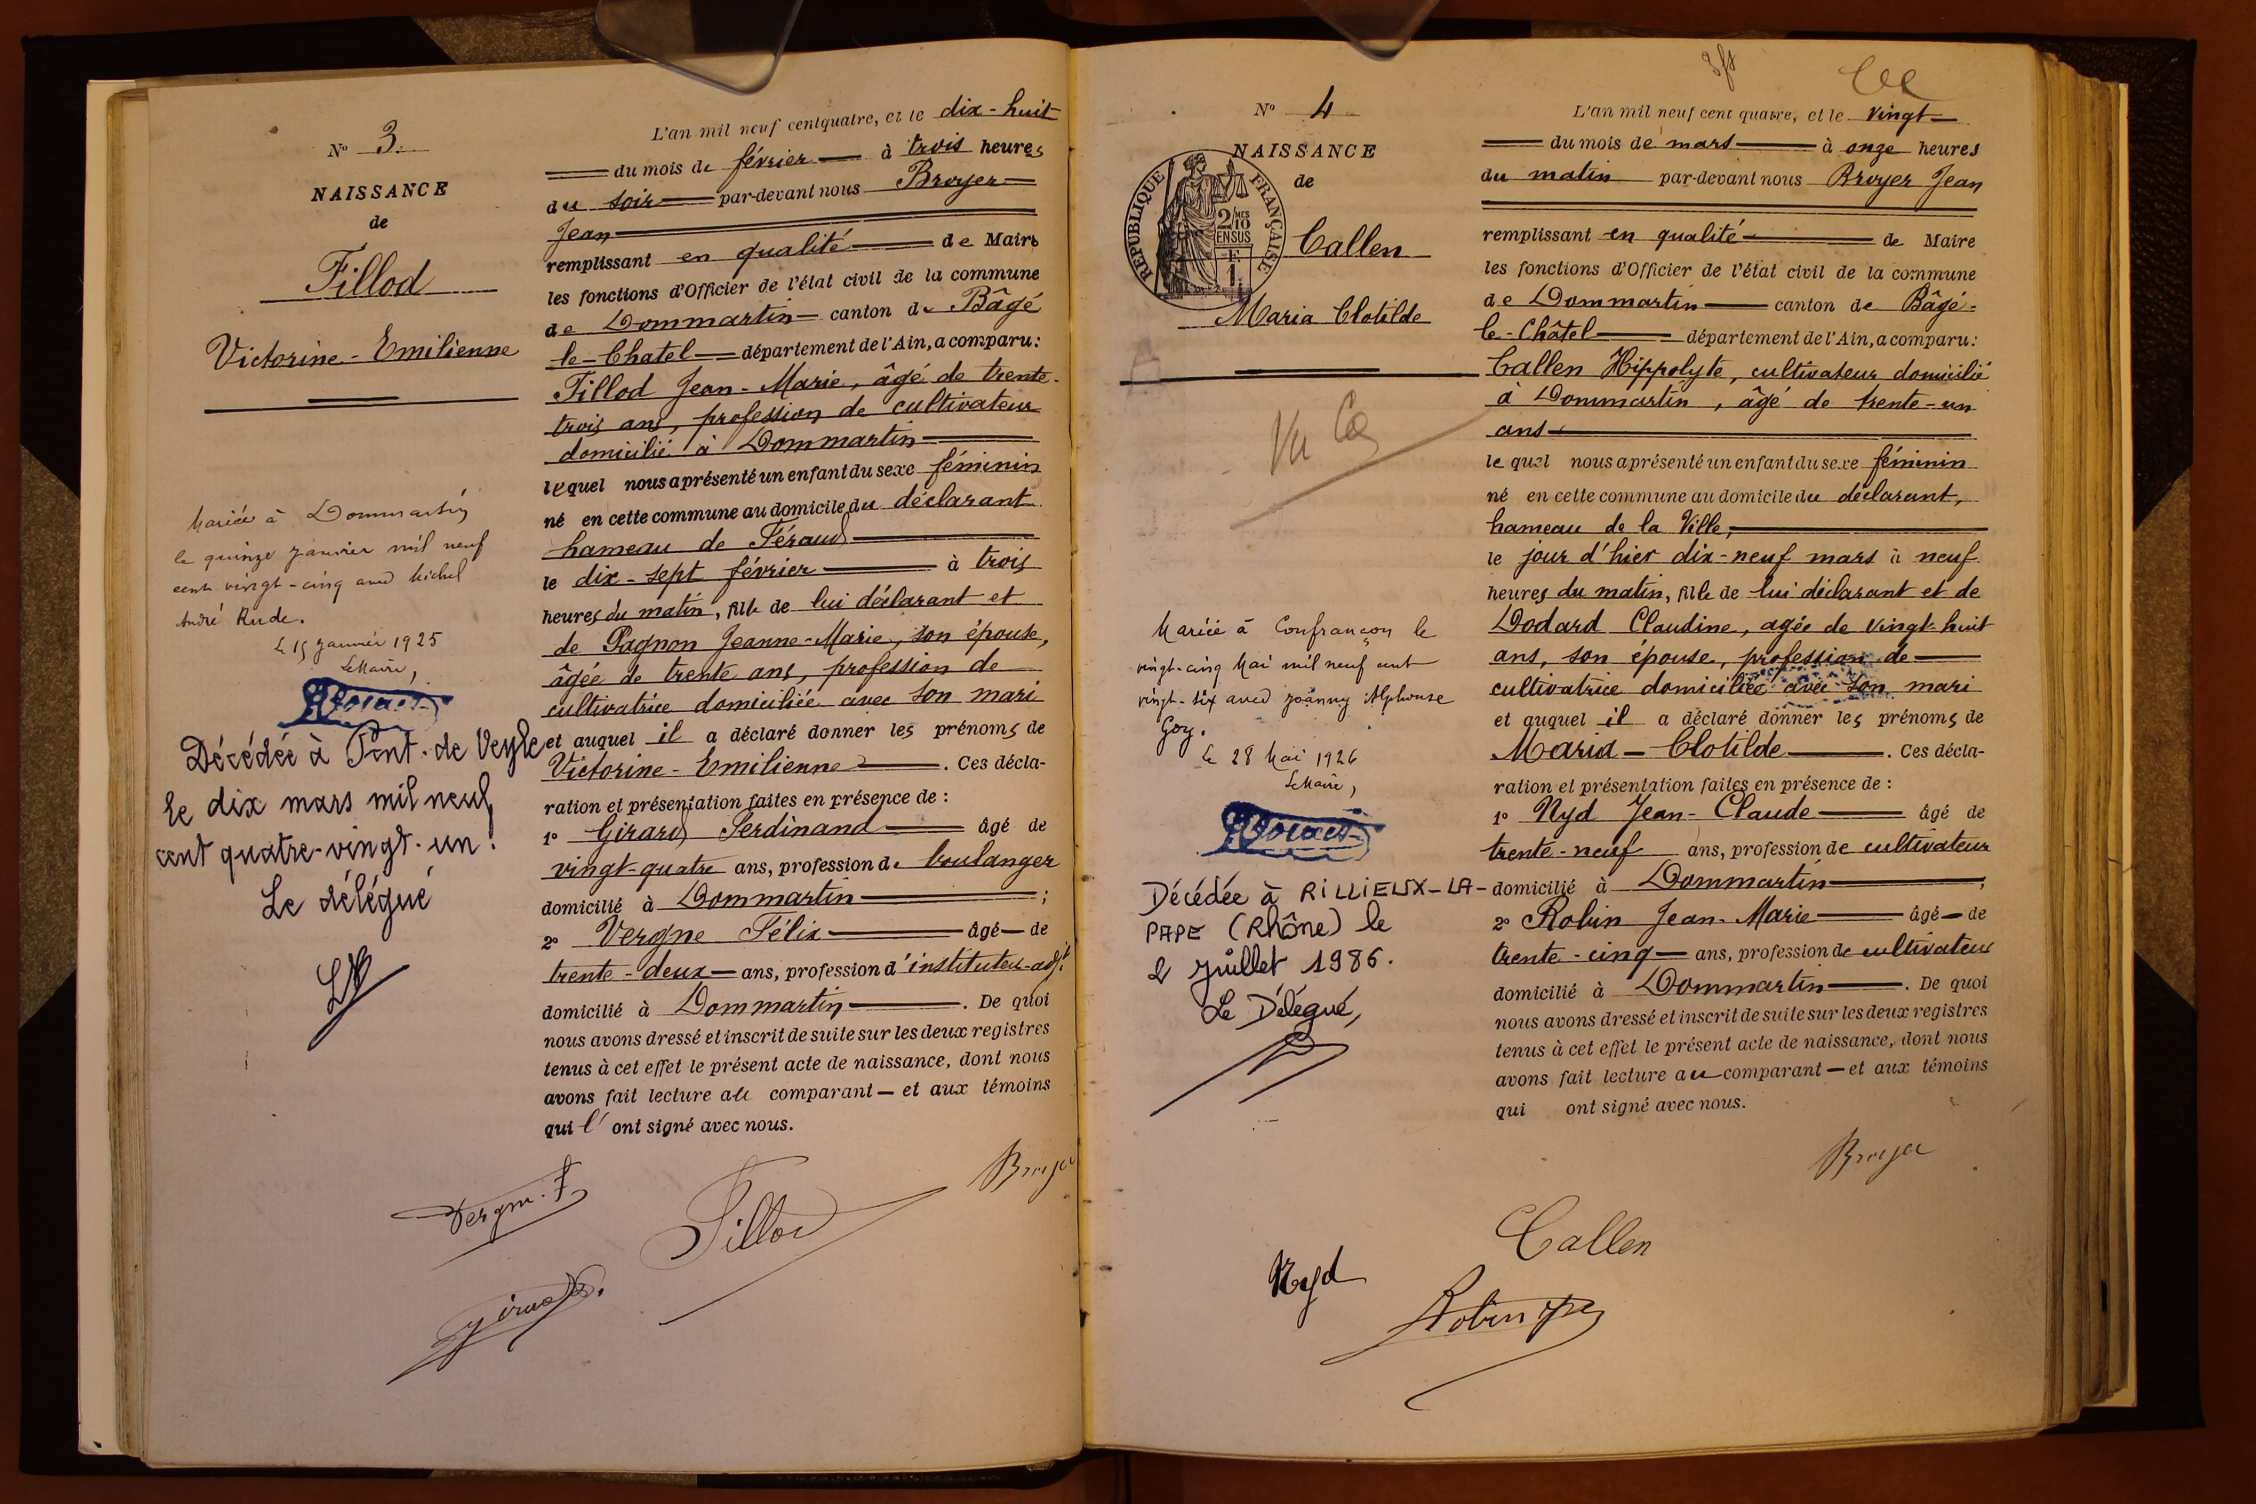 N° 3.
NAISSANCE
de
Fillod
Victorine-Emilienne
Mariée à Dommartin
le quinze janvier mil neuf
cent vingt-cinq avec Michel
André Rude.
Le 15 janvier 1925
Le Maire,
Décédée à Pont-de-Veyle
le dix mars mil neuf
cent quatre-vingt-un.
Le délégué
L'an mil neuf cent quatre, et le dix-huit
du mois de février à trois heures
du soir par-devant nous Broyer
Jean
remplissant en qualité de Maire
les fonctions d'Officier de l'état civil de la commune
de Dommartin canton de Bâgé
le-Chatel département de l'Ain, a comparu:
Fillod Jean-Marie, âgé de trente-
trois ans, profession de cultivateur
domicilié à Dommartin
lequel nous a présenté un enfant du sexe féminin
né en cette commune au domicile du déclarant
hameau de Féraud
le dix-sept février à trois
heures du matin, fille de lui déclarant et
de Pagnon Jeanne-Marie, son épouse,
âgée de trente ans, profession de
cultivatrice domiciliée avec son mari
et auquel il a déclaré donner les prénoms de
Victorine-Emilienne. Ces décla-
ration et présentation faites en présence de :
1° Girard Ferdinand âgé de
vingt-quatre ans, profession de boulanger
domicilié à Dommartin ;
2° Vergne Félix âgé de
trente-deux ans, profession d'instituteur-adjt
domicilié à Dommartin. De quoi
nous avons dressé et inscrit de suite sur les deux registres
tenus à cet effet le présent acte de naissance, dont nous
avons fait lecture au comparant et aux témoins
qui l' ont signé avec nous.
Vergne. F
Fillod
Broyer
Girard
N° 4
NAISSANCE
de
REPUBLIQUE FRANÇAISE
2/10 MES
EN SUS
F
1
Callen
Maria Clotilde
Vu
Mariée à Confrançon le
vingt-cinq Mai mil neuf cent
vingt-six avec Joanny Alphonse
Goy.
Le 28 Mai 1926
Le Maire,
Décédée à RILLIEUX-LA-
PAPE (Rhône) le
2 Juillet 1986.
Le Délégué,
L'an mil neuf cent quatre, et le vingt
du mois de mars à onze heures
du matin par-devant nous Broyer Jean
remplissant en qualité de Maire
les fonctions d'Officier de l'état civil de la commune
de Dommartin canton de Bâgé-
le-Châtel département de l'Ain, a comparu:
Callen Hippolyte, cultivateur domicilié
à Dommartin, âgé de trente-un
ans
lequel nous a présenté un enfant du sexe féminin
né en cette commune au domicile du déclarant,
hameau de la Ville,
le jour d'hier dix-neuf mars à neuf
heures du matin, fille de lui déclarant et de
Dodard Claudine, agée de vingt-huit
ans, son épouse, profession de
cultivatrice domiciliée avec son mari
et auquel il a déclaré donner les prénoms de
Maria-Clotilde. Ces décla-
ration et présentation faites en présence de :
1° Nyd Jean-Claude âgé de
trente-neuf ans, profession de cultivateur
domicilié à Dommartin ;
2° Robin Jean-Marie âgé de
trente-cinq ans, profession de cultivateur
domicilié à Dommartin. De quoi
nous avons dressé et inscrit de suite sur les deux registres
tenus à cet effet le présent acte de naissance, dont nous
avons fait lecture au comparant et aux témoins
qui ont signé avec nous.
Broyer
Callen
Nyd
Robin